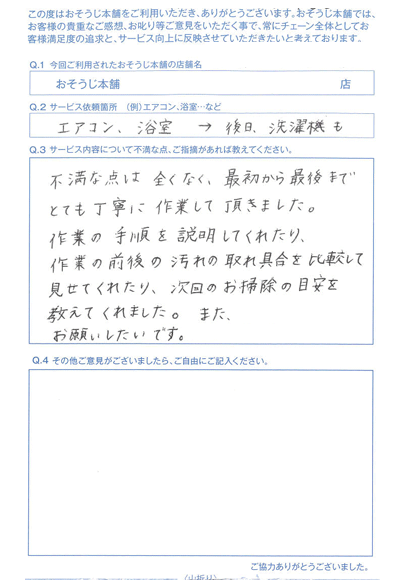 この度はおそうじ本舗をご利用いただき、ありがとうございます。おそうじ本舗では、
お客様の貴重なご感想、お叱り等ご意見をいただく事で、常にチェーン全体としてお
客様満足度の追求と、サービス向上に反映させていただきたいと考えております。
Q.1 今回ご利用されたおそうじ本舗の店舗名
おそうじ本舗 店
Q.2 サービス依頼箇所 (例)エアコン、浴室…など
エアコン、浴室 → 後日、洗濯機も
Q.3 サービス内容について不満な点、ご指摘があれば教えてください。
不満な点は全くなく、最初から最後まで
とても丁寧に作業して頂きました。
作業の手順を説明してくれたり、
作業の前後の汚れの取れ具合を比較して
見せてくれたり、次回のお掃除の目安を
教えてくれました。また、
お願いしたいです。
Q.4 その他ご意見がございましたら、ご自由にご記入ください。
ご協力ありがとうございました。